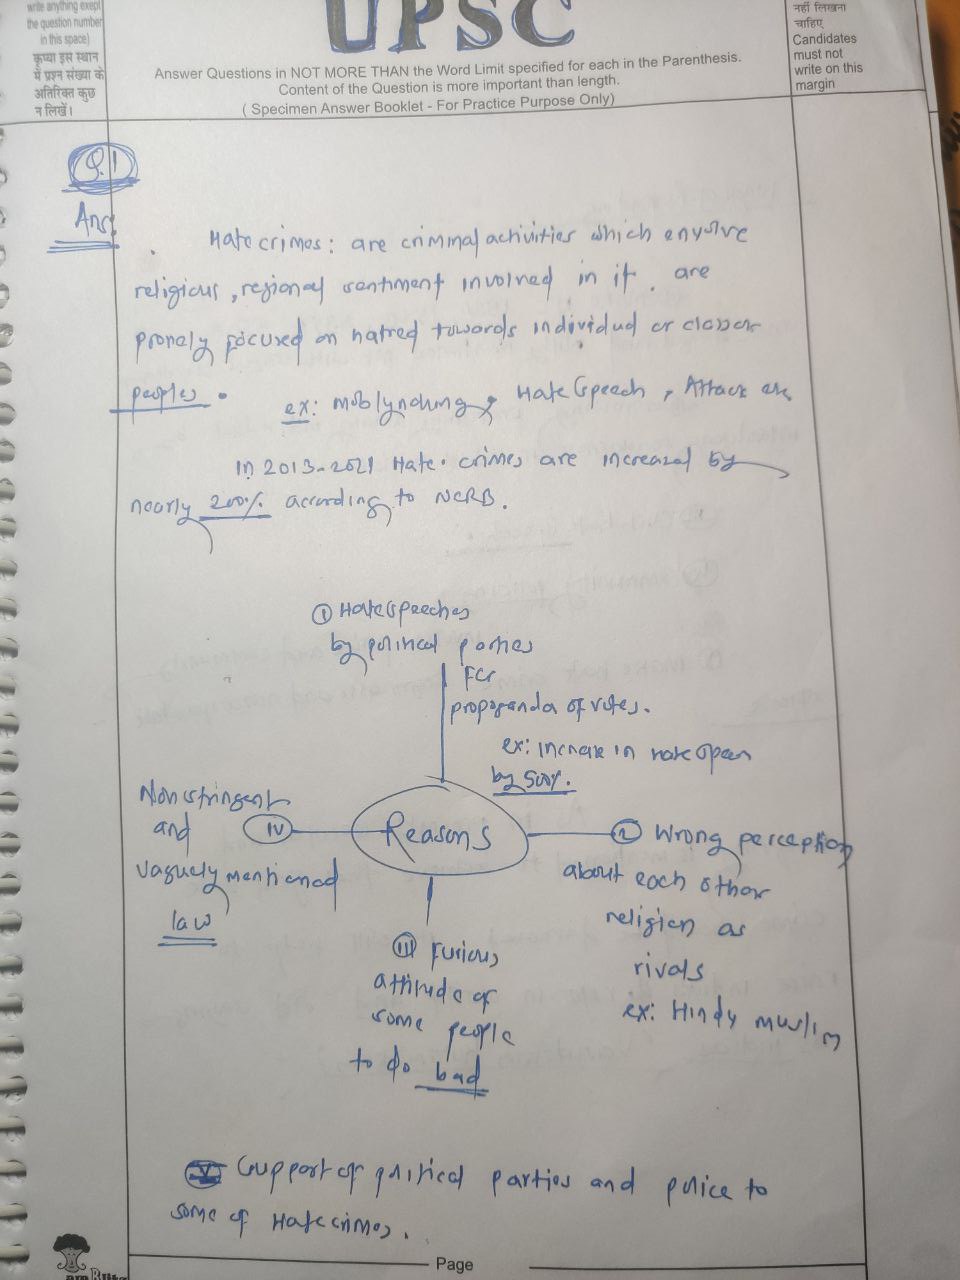 write anything exept
the question number
in this space)
कृप्या इस स्थान
में प्रश्न संख्या के
अतिरिक्त कुछ
न लिखें।
UPSC
Answer Questions in NOT MORE THAN the Word Limit specified for each in the Parenthesis.
Content of the Question is more important than length.
( Specimen Answer Booklet - For Practice Purpose Only)
नहीं लिखना
चाहिए
Candidates
must not
write on this
margin
Q.1
Ans:
Hate crimes: are criminal activities which envolve
religious, regional sentiment involved in it. are
focused on hatred towards individual or
peoples.
ex: moblynching, Hate speech, Attack etc
In 2013-2021 Hate crimes are increased by
nearly 200% according to NCRB.
① Hate speeches
by political parties
For
propoganda of votes.
ex: increase in hate speech
by 500%.
Non stringent
and
vaguely mentioned
law
IV
Reasons
② Wrong perception
about each other
religion as
rivals
ex: Hindu muslim
III Furious
attitude of
some people
to do bad
V Support of political parties and police to
some of Hate crimes.
Page